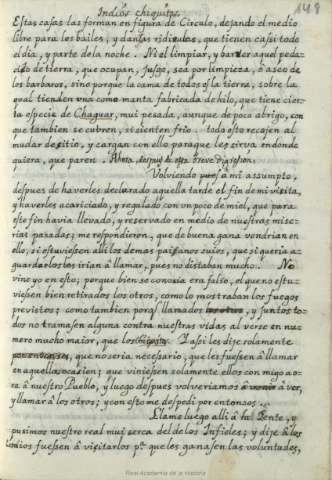 Indios Chiquitos. 148
Estas casas las forman en figura de Circulo, dejando el medio
libre para los bailes, y danzas ridiculas, que tienen casi todo
el dia, y parte de la noche. Ni el limpiar, y barrer aquel peda-
cito de tierra, que ocupan, juzgo, sea por limpieza, ò aseo de
los barbaros, sino porque la cama de todos es la tierra, sobre la
qual tienden una como manta fabricada de hilo, que tiene cier-
ta especie de Chaguar, mui pesada, aunque de poco abrigo, con
que tambien se cubren, si sienten frio. todo esto recojen al
mudar de sitio, y cargan con ello para que les sirva en donde
quiera, que paren. Ahora, despues de esta breve digresion.
Volviendo pues à mi assumpto,
despues de haverles declarado aquella tarde el fin de mi visita,
y haverles acariciado, y regalado con un poco de miel, que para
este fin havia llevado, y reservado en medio de nuestras mise-
rias pasadas; me respondieron, que de buena gana vendrian en
ello, si estuviesen alli los demas paisanos suios, que si queria a-
guardarlos los irian à llamar, pues no distaban mucho. No
vine yo en esto; porque bien se conosia era falso, el que no estu-
viesen bien retirados los otros, como lo mostraban los fuegos
previstos; como tambien porq̃ llamados y juntos to-
dos no tramasen alguna contra nuestras vidas al verse en nu-
mero mucho maior, que los Y asi les dije solamente
por entonces, que no seria necessario, que les fuesen à llamar
en aquella ocasion; que viniesen solamente ellos con migo ao-
ra à nuestro Pueblo, y luego despues volveriamos à ver,
y llamar à los otros; y con esto me despedi por entonces...
Llame luego alli à la Jente, y
pusimos nuestro real mui cerca del de los Infieles; y dije à los
Indios fuesen à visitarlos pa. que les ganasen las voluntades,
Real Academia de la Historia